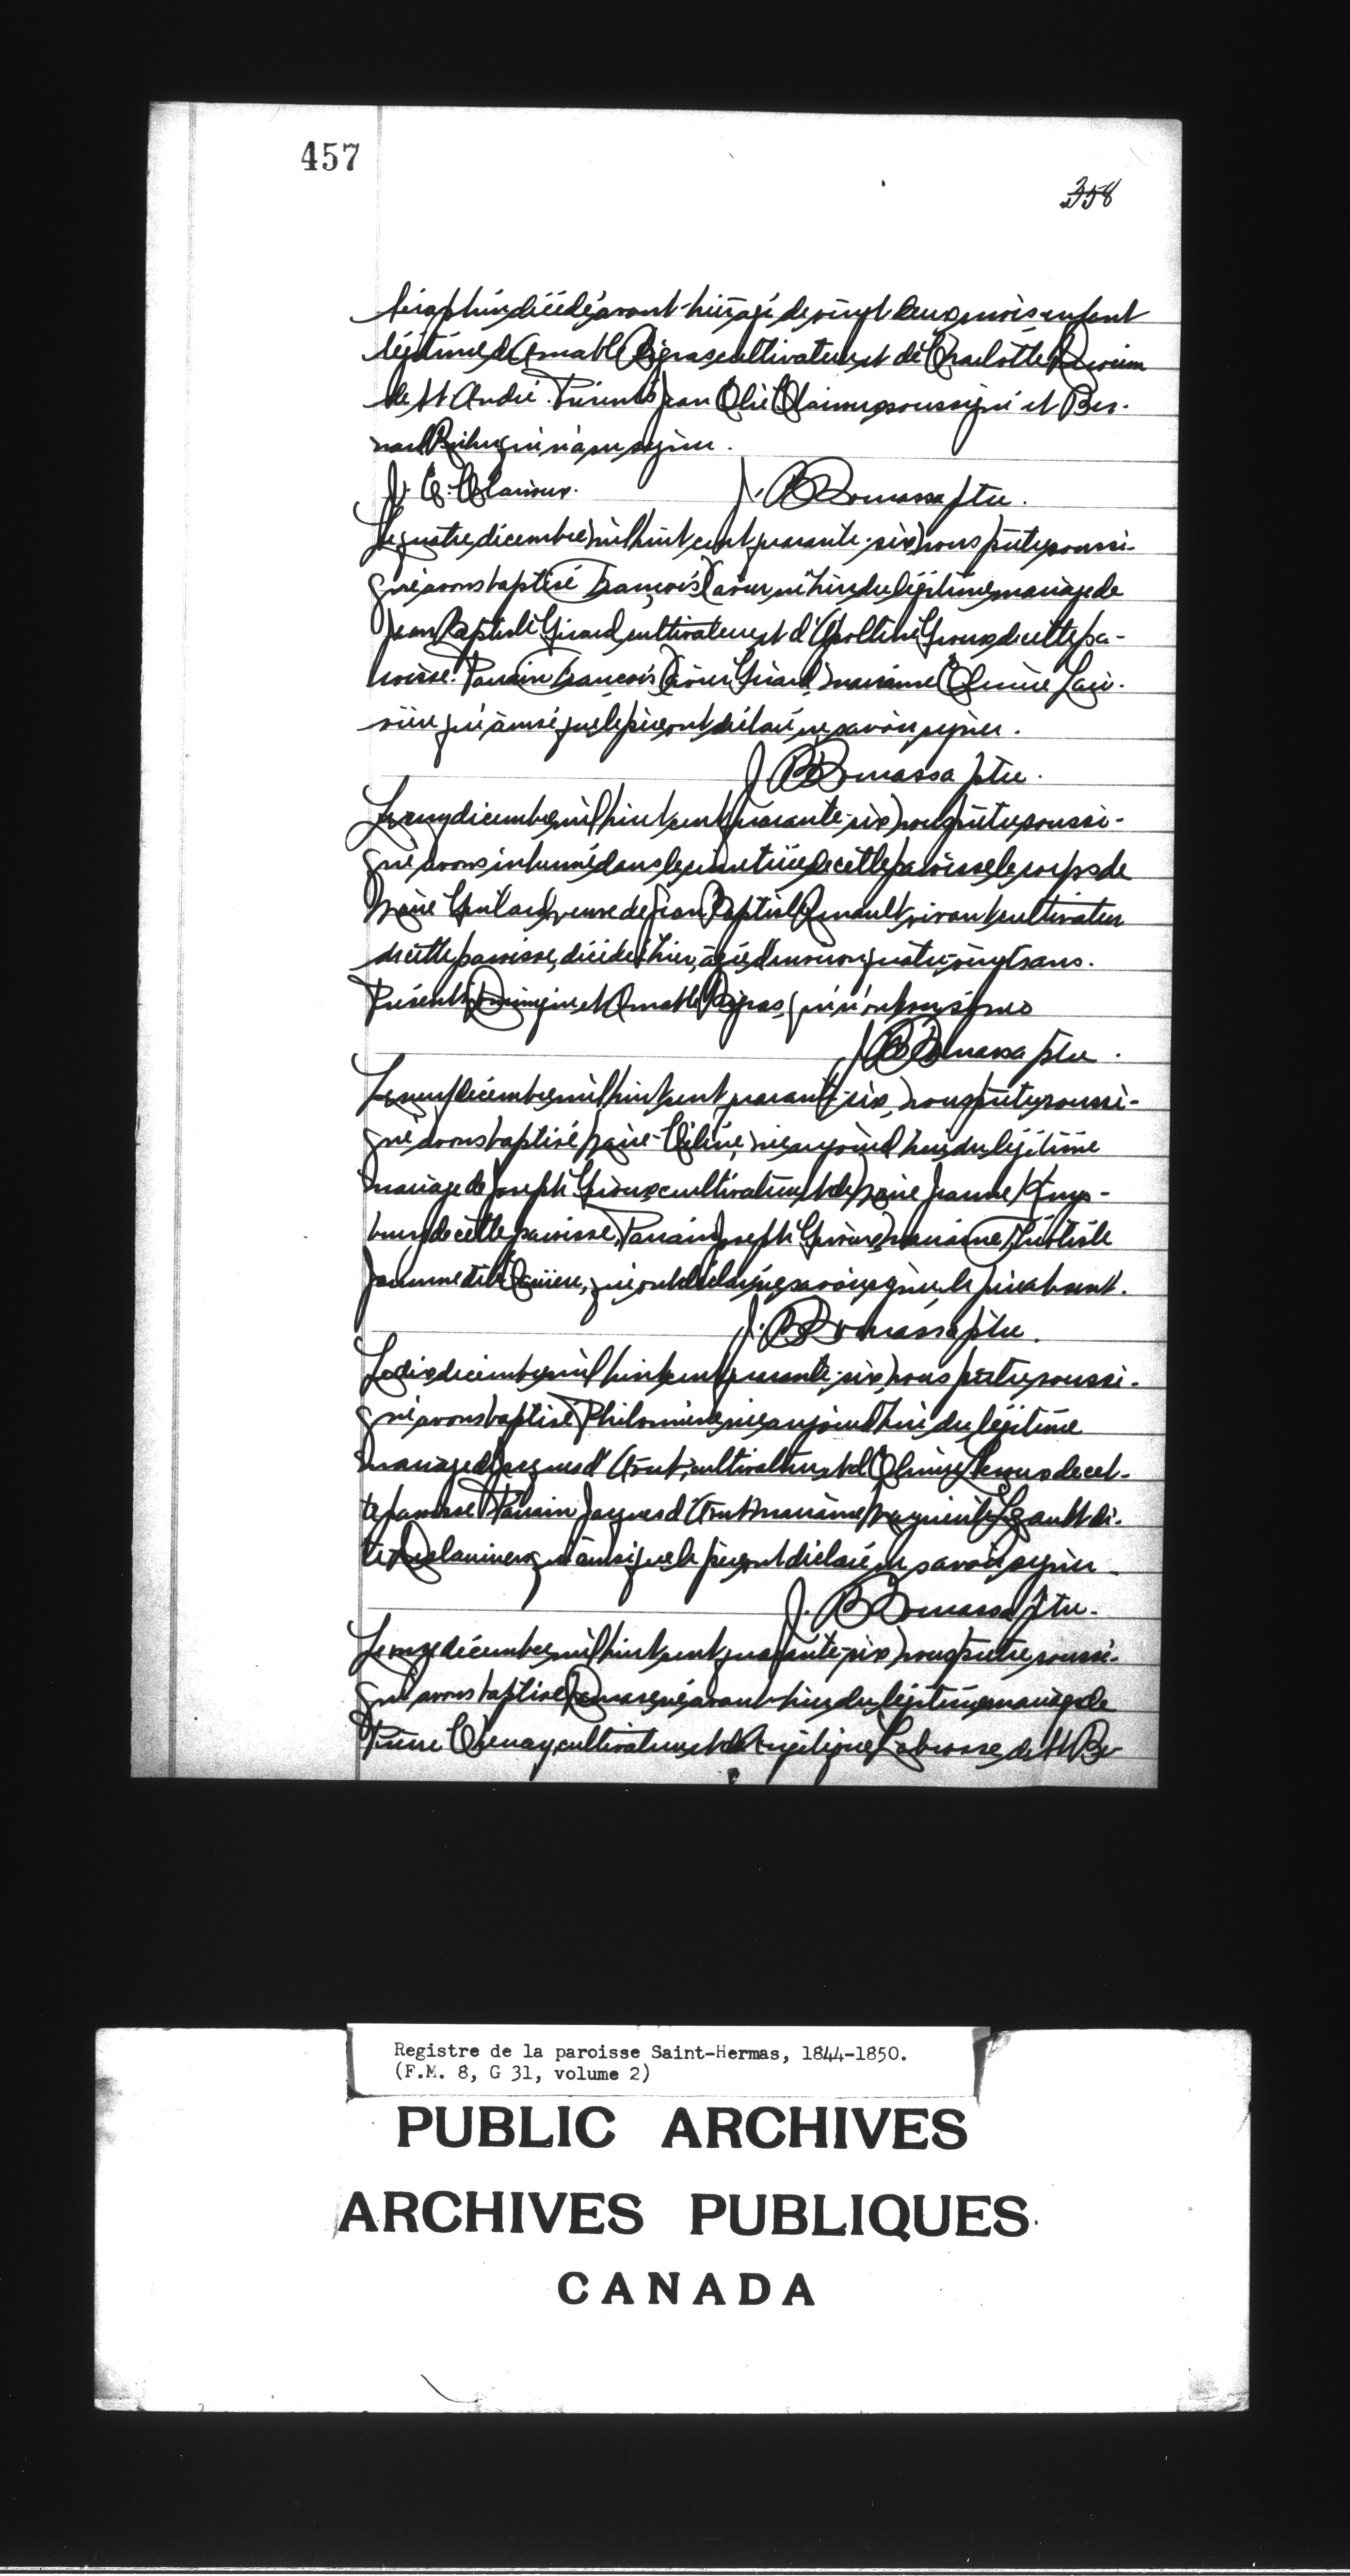 457
358
Séraphin décédé avant-hier agé de vingt deux mois enfant
légitime d'Amable Bigras cultivateur et de Charlotte
de St André. Présents Jean Clairoux soussigné et Ber-
nard qui n'a su signer.
J. E. Clairoux. J. B Domassa ptre.
Le quatre décembre mil huit cent quarante-six nous prêtre soussi-
gné avons baptisé François Xavier né hier du légitime mariage de
Jean Baptiste Girard cultivateur et d'Apolline Giroux de cette pa-
roisse. Parrain François Xavier Girard marraine Olimie Lari-
vière qui ainsi que le père ont déclaré ne savoir signer.
J. B Domassa ptre.
Le cinq décembre mil huit cent quarante-six nous prêtre soussi-
gné avons inhumé dans le cimetière de cette paroisse le corps de
Marie veuve de Jean Baptiste vivant cultivateur
de cette paroisse, décédée hier, agée d'environ quatre-vingt ans.
Présents et Amable Bigras, qui n'ont su signer
J. B Domassa ptre.
Le neuf décembre mil huit cent quarante-six, nous prêtre soussi-
gné avons baptisé Marie-Céline, née aujourd'hui du légitime
mariage de Joseph Giroux cultivateur et de Marie Jeanne Kings-
bury de cette paroisse, Parrain Joseph Giroux marraine
qui ont déclaré ne savoir signer, le père absent.
J. B Domassa ptre.
Le dix décembre mil huit cent quarante-six, nous prêtre soussi-
gné avons baptisé Philomène née aujourd'hui du légitime
mariage de Jacques d'Aout, cultivateur et d'Olimie Leroux de cet-
te paroisse Parrain Jacques d'Aout marraine Marguerite Legault di-
te Deslauriers qui ainsi que le père ont déclaré ne savoir signer
J. B Domassa ptre.
Le onze décembre mil huit cent quarante-six nous prêtre soussi-
gné avons baptisé Damase né avant-hier du légitime mariage de
Pierre cultivateur et de Angélique Labrosse de St Be-
Registre de la paroisse Saint-Hermas, 1844-1850.
(F.M. 8, G 31, volume 2)
PUBLIC ARCHIVES
ARCHIVES PUBLIQUES
CANADA